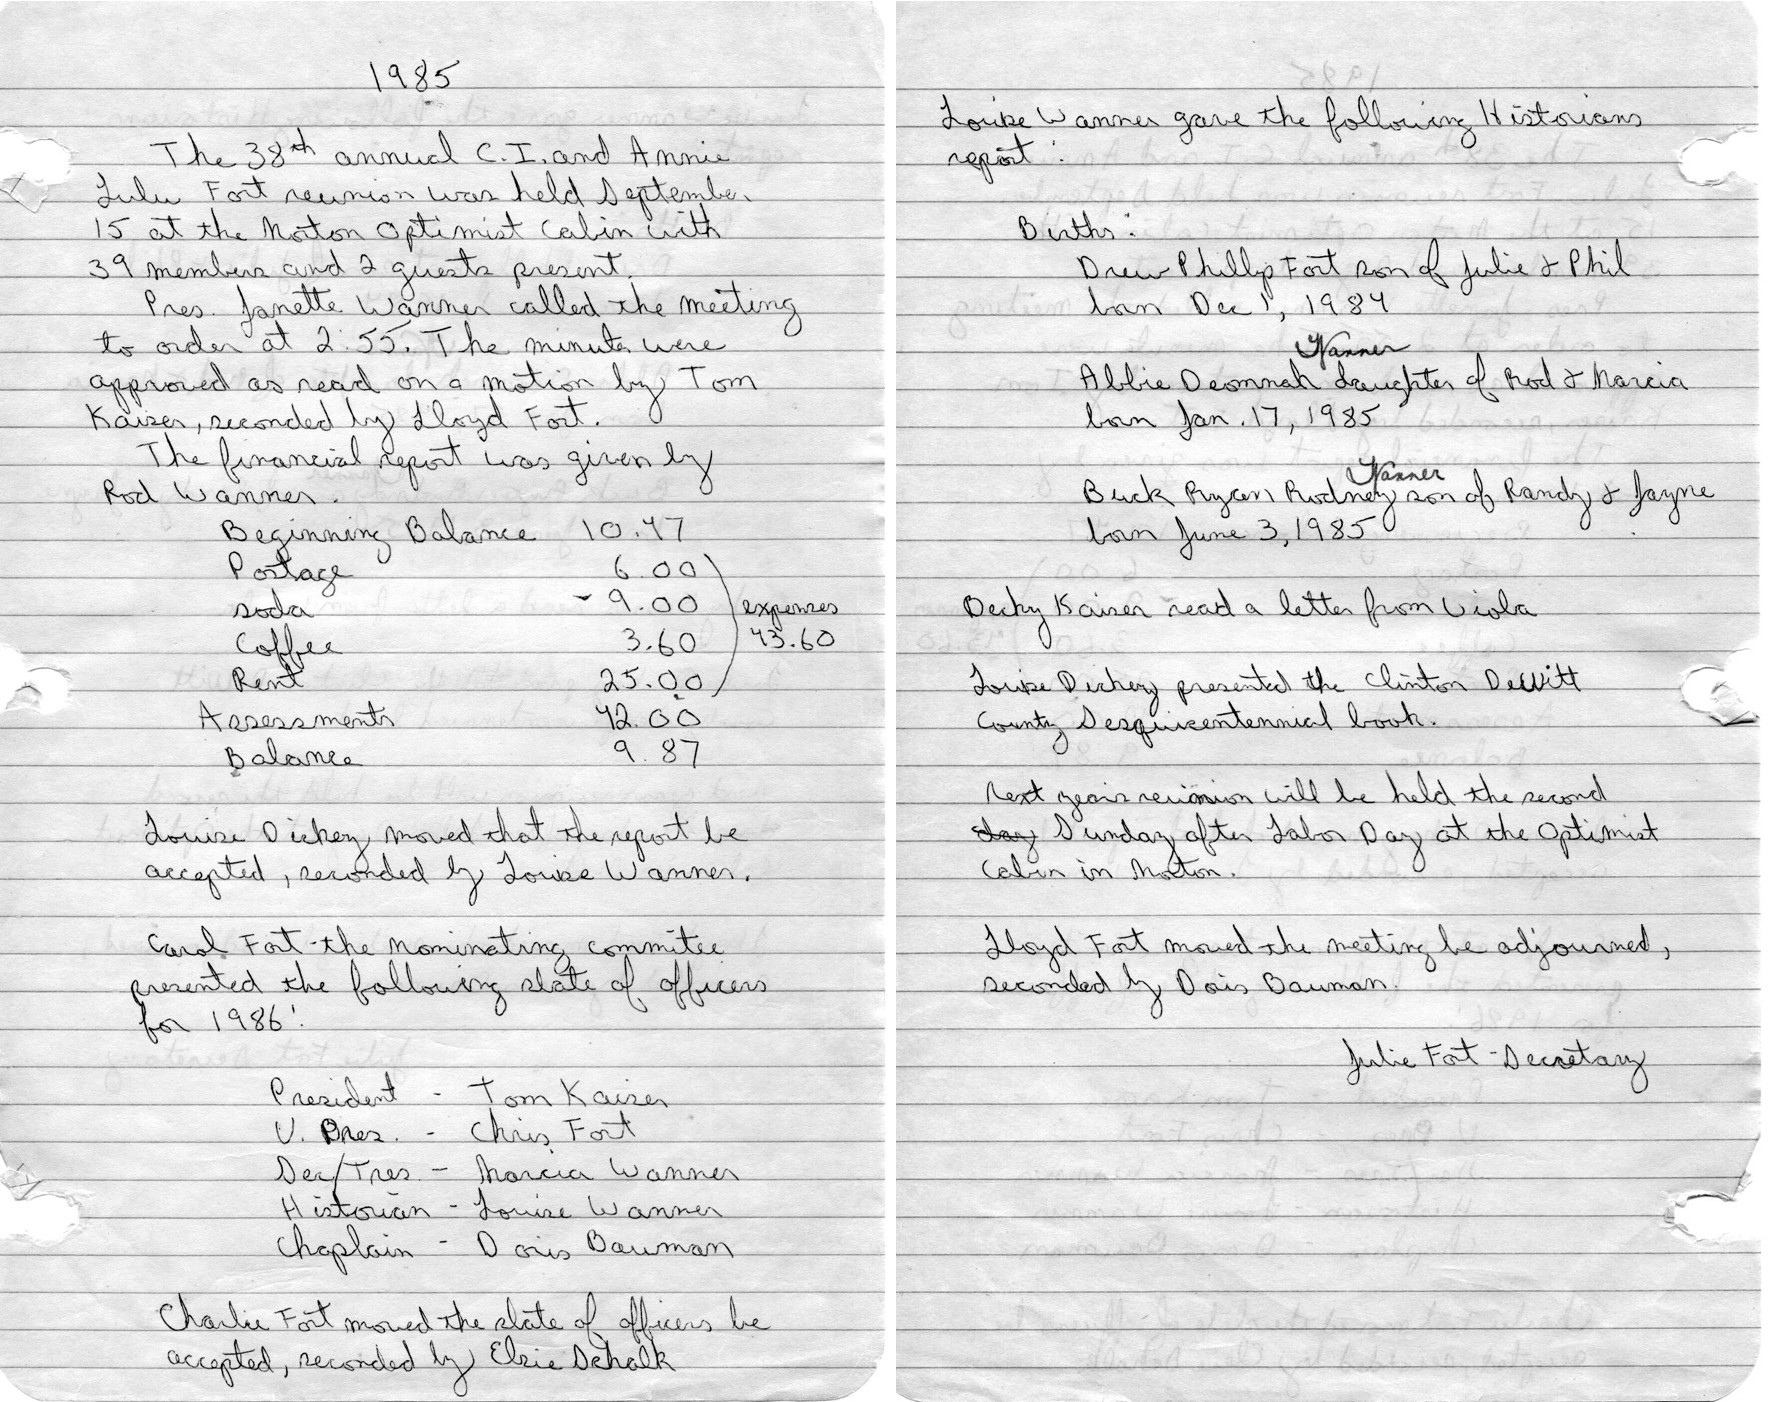 1985
The 38th annual C.I. and Annie
Lulu Fort reunion was held September
15 at the Morton Optimist Cabin with
39 members and 2 guests present.
Pres. Janette Wanner called the meeting
to order at 2:55. The minutes were
approved as read on a motion by Tom
Kaiser, seconded by Lloyd Fort.
The financial report was given by
Rod Wanner.
Beginning Balance 10.47
Postage 6.00
soda 9.00 expenses
Coffee 3.60 43.60
Rent 25.00
Assessments 42.00
Balance 9.87
Louise Dickey moved that the report be
accepted, seconded by Louise Wanner.
Carol Fort - the nominating commitee
presented the following slate of officers
for 1986:
President - Tom Kaiser
V. Pres. - Chris Fort
Sec/Tres. - Marcia Wanner
Historian - Louise Wanner
Chaplain - Doris Bauman
Charlie Fort moved the slate of officers be
accepted, seconded by Elsie Schalk
Louise Wanner gave the following Historians
report:
Births:
Drew Phillip Fort son of Julie & Phil
born Dec 1, 1984
Wanner
Abbie Deonnah daughter of Rod & Marcia
born Jan. 17, 1985
Wanner
Buck Ryan Rodney son of Randy & Jayne
born June 3, 1985
Becky Kaiser read a letter from Viola
Louise Dickey presented the Clinton DeWitt
County Sesquicentennial book.
Next years reunion will be held the second
day Sunday after Labor Day at the Optimist
Cabin in Morton.
Lloyd Fort moved the meeting be adjourned,
seconded by Doris Bauman.
Julie Fort - Secretary